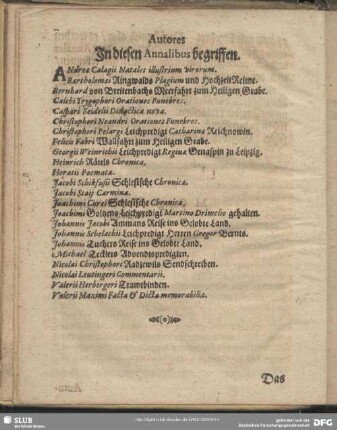 Autores
In diesen Annalibus begriffen.
ANdreæ Calagii Natales illustrium virorum.
Bartholomæi Ringwalds Plagium und HochzeitReime.
Bernhard von Breitenbachs Meerfahrt zum Heiligen Grabe.
Calebi Trygophori Orationes Funebres.
Caspari Seidelii Didactica nova.
Christophori Neandri Orationes Funebres.
Christophori Pelargi Leichpredigt Catharina Reichnowin.
Felicis Fabri Wallfahrt zum Heiligen Grabe.
Georgii Weinrichii Leichpredigt Regina Genaspin zu Leipzig.
Heinrich Rätels Chronica.
Horatii Poemata.
Jacobi Schikfusii Schlesische Chronica.
Jacobi Staij Carmina.
Joachimi Curei Schlesische Chronica.
Joachimi Golzens Leichpredigt Martino Drimelio gehalten.
Johannis Jacobi Ammans Reise ins Gelobte Land.
Johannis Schelachii Leichpredigt Herren Gregor Bernts.
Johannis Tuchers Reise ins Gelobte Land.
Michael Tecklers Adventspredigten.
Nicolai Christophori Radzewils Sendschreiben.
Nicolai Leutingeri Commentarii.
Valerii Herbergeri Traurbinden.
Valerii Maximi Facta & Dicta memorabilia.
Das
SLUB
Wir führen Wissen.
gefördert von der
Deutschen Forschungsgemeinschaft
DFG